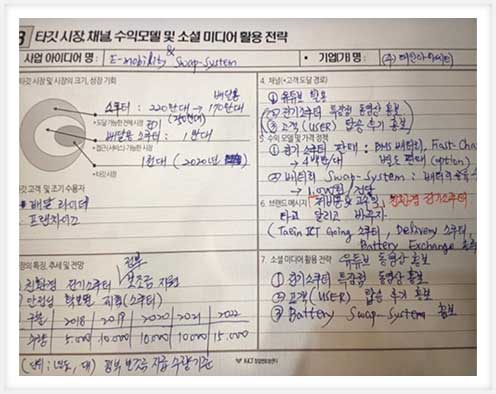 3 타깃 시장, 채널, 수익모델 및 소셜 미디어 활용 전략
사업 아이디어 명 : E-mobility & Swap-System
기업(개)명 : (주)
타깃 시장 및 시장의 크기, 성장 기회
스쿠터 : 220만대 → 170만대
배달용
•도달 가능한 전체시장
전기
배달용 스쿠터 : 1만대
•접근(서비스) 가능한 시장
1천대 (2020년
•타깃시장
타깃 고객 및 초기 수용자
배달 라이더
프랜차이즈
장의 특징, 추세 및 전망
친환경 전기스쿠터 정부 보조금 지원
안전성 확보된 제품 (스쿠터)
구분 2018 2019 2020 2021 2022
수량 5.000 10.000 10.000 10.000 15.000
(단위 : 년도, 대) 정부 보조금 지급 수량 기준
4. 채널(•고객 도달 경로)
① 유튜브 활용
② 전기스쿠터 특장점 동영상 홍보
③ 고객(USER) 탑승 후기 홍보
5. 수익 모델과 가격 정책
① 전기 스쿠터 판매 : BMS 배터리, Fast-Cha
→ 4백만대 별도 판매 (option)
② 배터리 Swap-System : 배터리
6. 브랜드 메시지
친환경 전기스쿠터
타고 달리고 바꾸자
(TaeIn ICT Going 스쿠터, Delivery 스쿠터,
Battery Exchange
7. 소셜 미디어 활용 전략 유튜브 동영상 홍보
① 전기스쿠터 특장점 동영상 홍보
② 고객(USER) 탑승 후기 홍보
③ Battery Swap-System 홍보